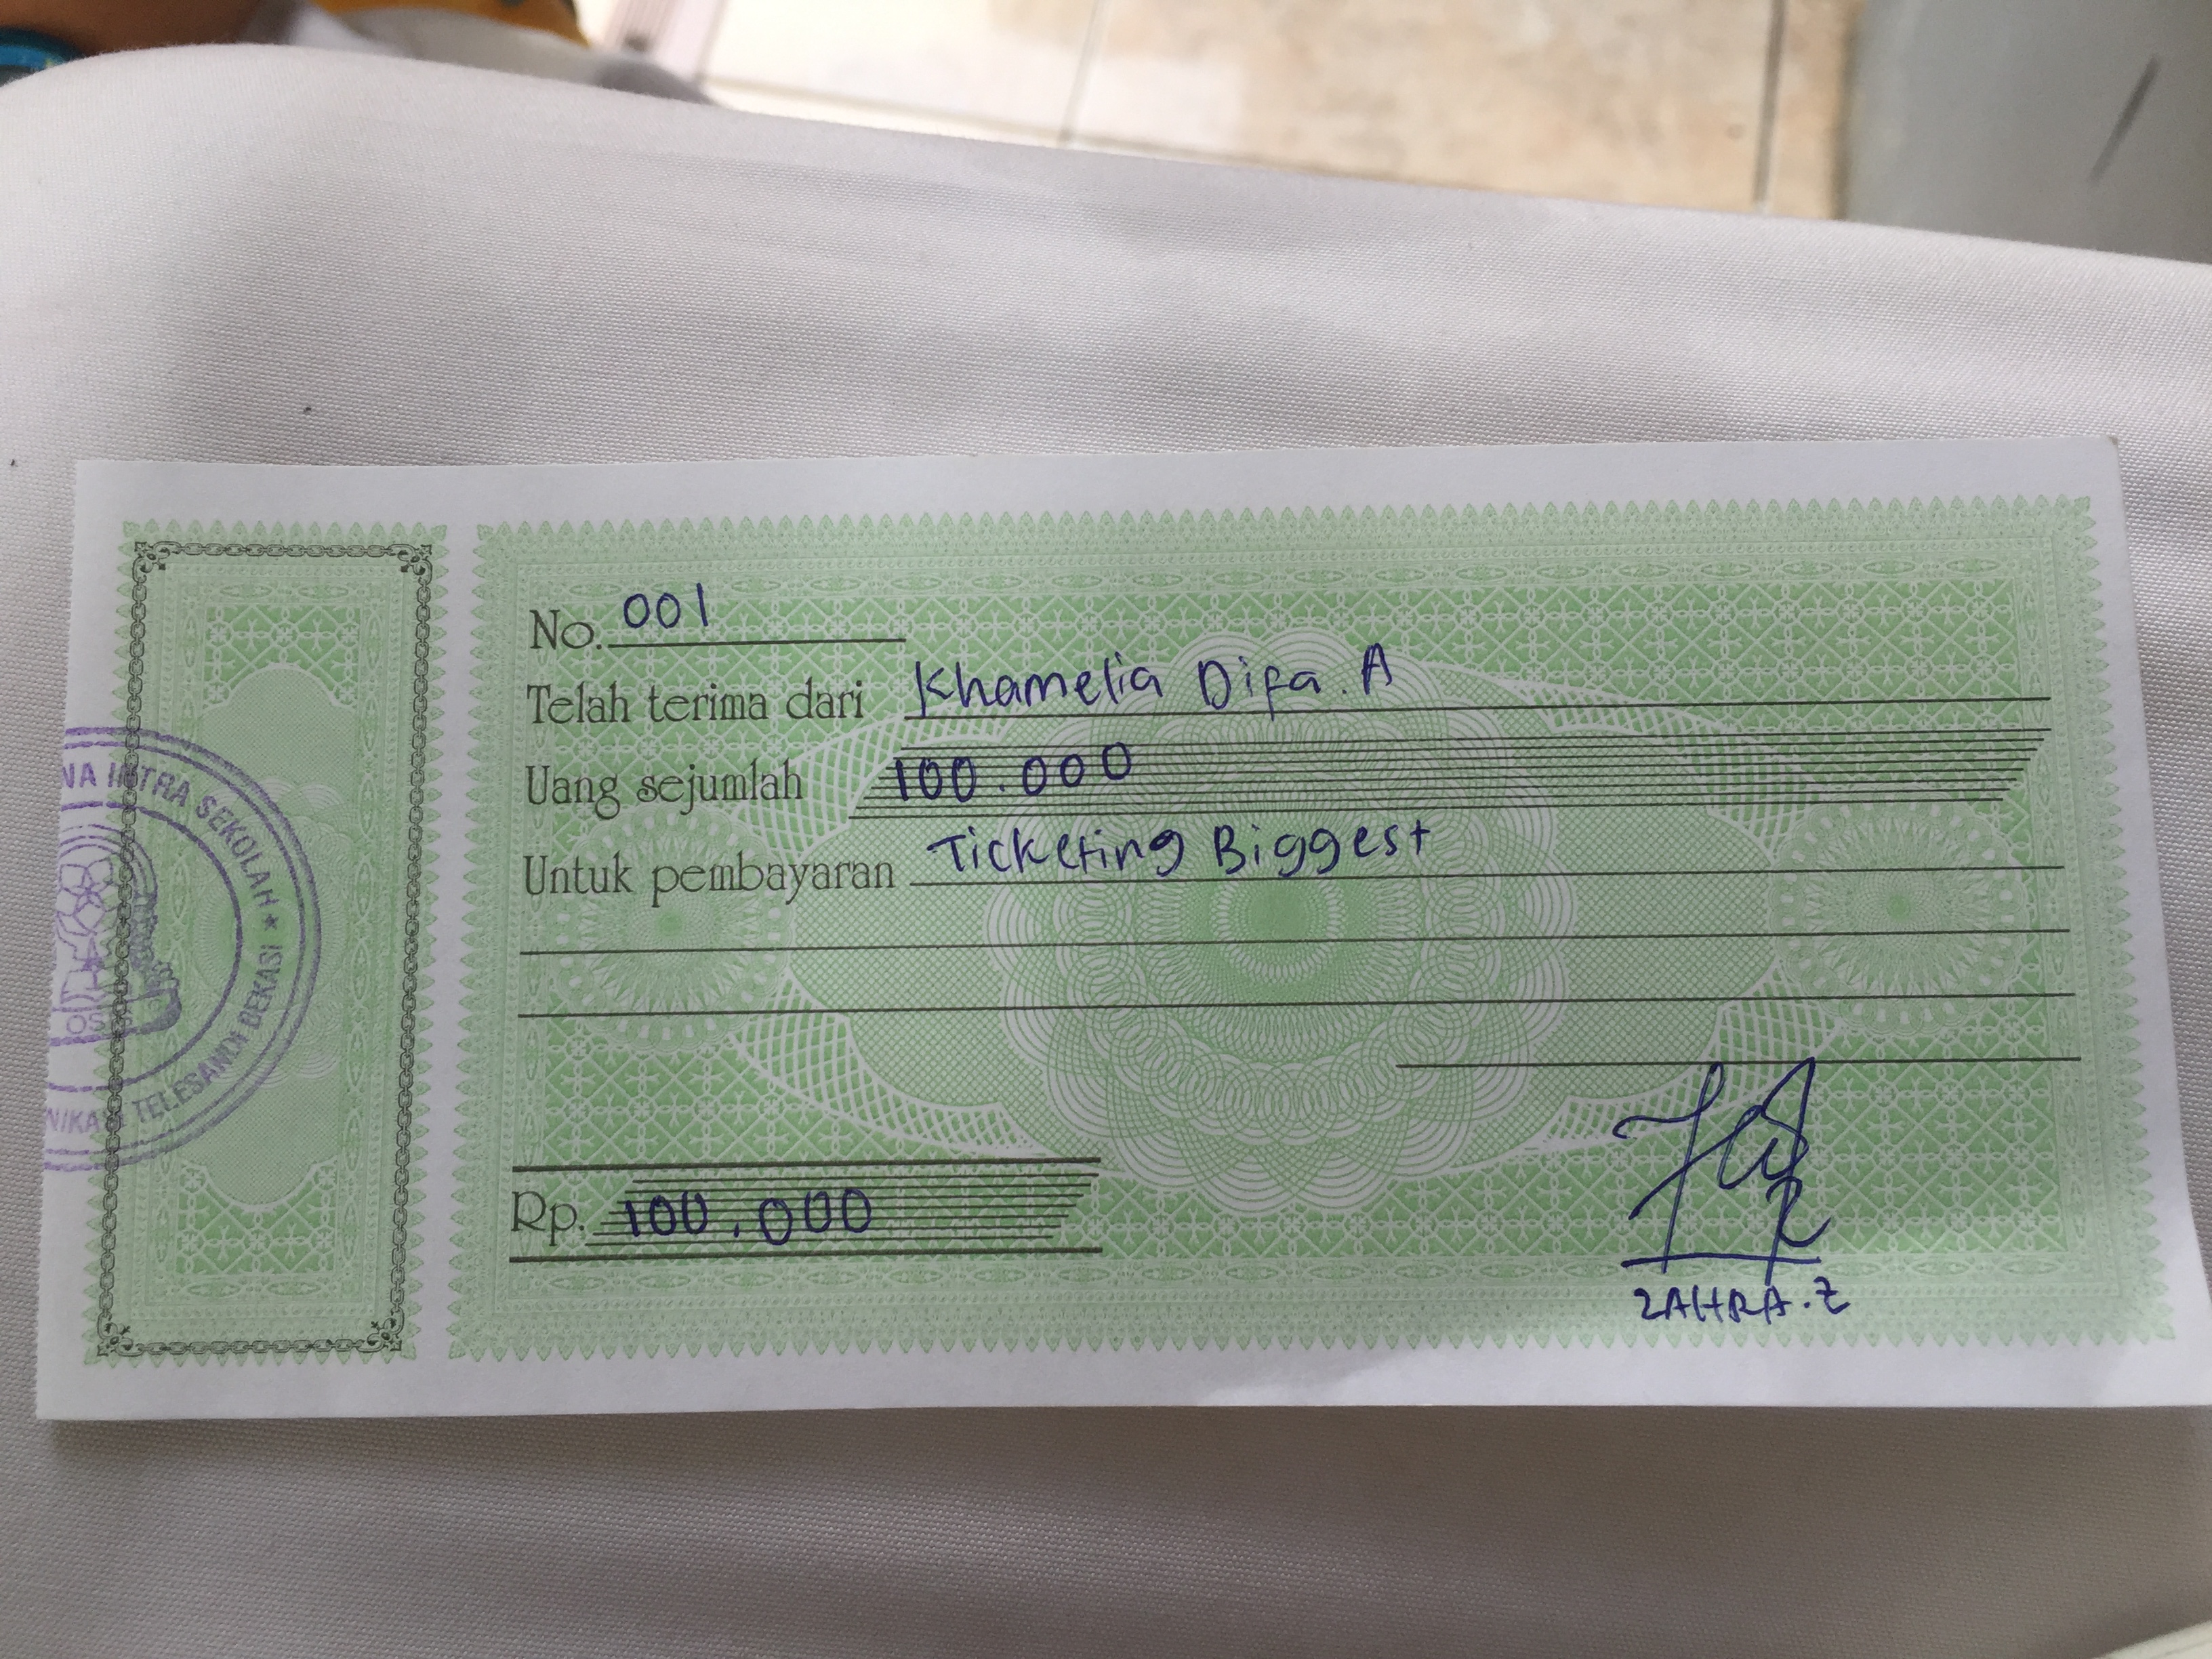 NA INTRA SEKOLAH
OS
TELESANDI BEKASI ★
No. 001
Telah terima dari Khamelia Difa. A
Uang sejumlah 100.000
Untuk pembayaran Ticketing Biggest
Rp. 100.000
ZAHRA.Z